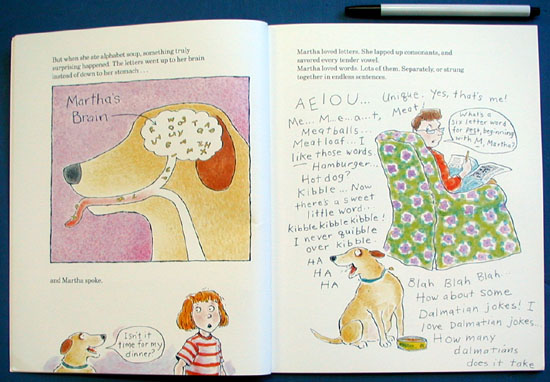 But when she ate alphabet soup, something truly
surprising happened. The letters went up to her brain
instead of down to her stomach . . .
Martha's
Brain
and Martha spoke.
Isn't it
time for my
dinner?
Martha loved letters. She lapped up consonants, and
savored every tender vowel.
Martha loved words. Lots of them. Separately, or strung
together in endless sentences.
AEIOU... Unique. Yes, that's me!
Me... M...e...a...t, Meat!
Meatballs...
Meat loaf... I
like those words.
Hamburger...
Hot dog?
Kibble... Now
there's a sweet
little word...
Kibble kibble kibble!
I never quibble
over kibble.
HA
HA
HA
What's a
six letter word
for pest, beginning
with M, Martha?
Blah Blah Blah...
How about some
Dalmatian jokes! I
love Dalmatian jokes...
How many
dalmatians
does it take